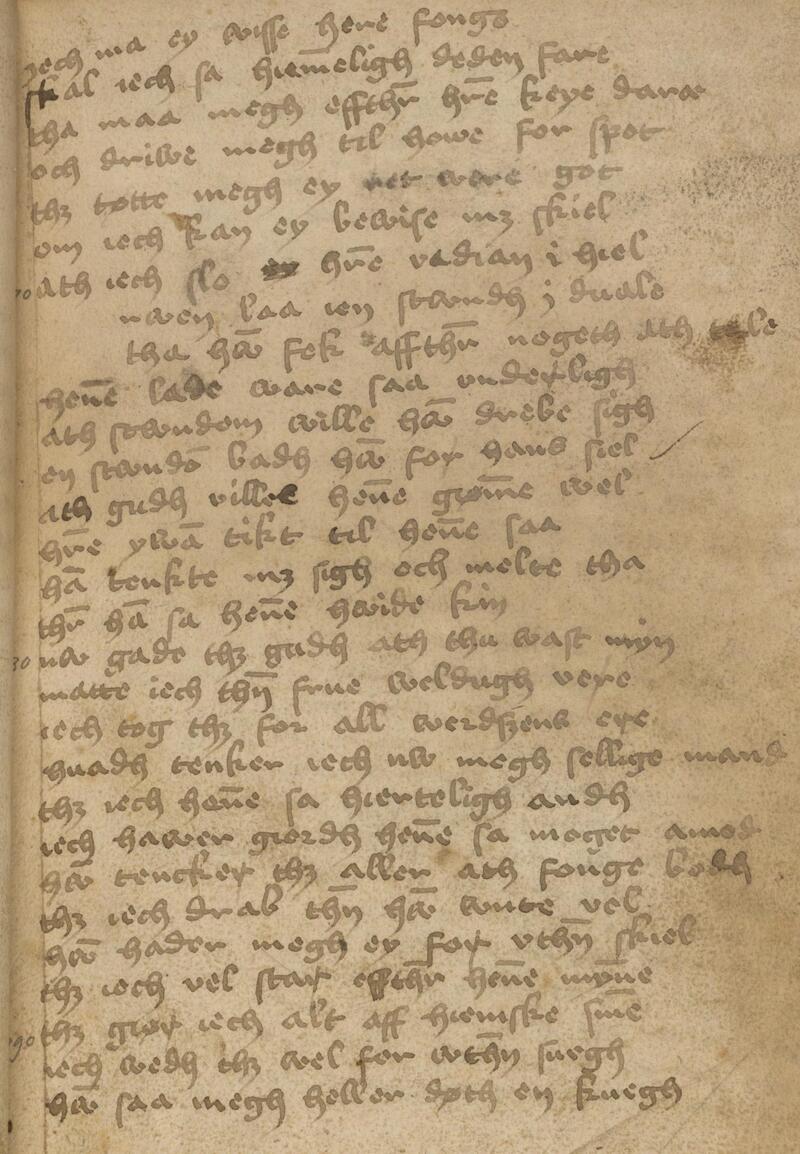 jech ma ey wisse here fonge
skal iech sa hiemēligh deden fare
tha maa megh effthr̄ hr̄e keye darae
och driwe megh til howe for spot
thz tøtte megh ey ret were got
om iech kan ey bewise mz skiel
70 ath iech slo hr̄e vadian i hiel
nwen laa ien stwndh j duale
tha hā̄ fek affthr̄ nogeth ath tale
hen̄e lade ware saa vnderligh
ath stwndom wille hā̄ drebe sigh
en stwndō badh hā̄ for hans siel
ath gudh ville hen̄e gøm̄e wel
hr̄e ywā tikt til hen̄e saa
hā tenkte mz sigh och melte tha
thr̄ hā sa hen̄e hwide kin
80 nw gade thz gudh ath thu wast myn
matte iech thn̄ frue weldugh vere
iech tog thz for all werdszens ere
huadh tenker iech nw megh sellige mand
thz iech hen̄e sa hierteligh andh
iech hawer giordh hen̄e sa moget amod
hā̄ tencker thz aller ath fonge bodh
thz iech drab thn̄ hā̄ wnte vel
hā̄ hader megh ey for vthn̄ skiel
thz iech vel star effthr̄ hen̄e myn̄e
thz giør iech alt aff hiemske sin̄e
90 iech wedh thz wel for wthn̄ suegh
hā̄ saa megh heller døth en kuegh